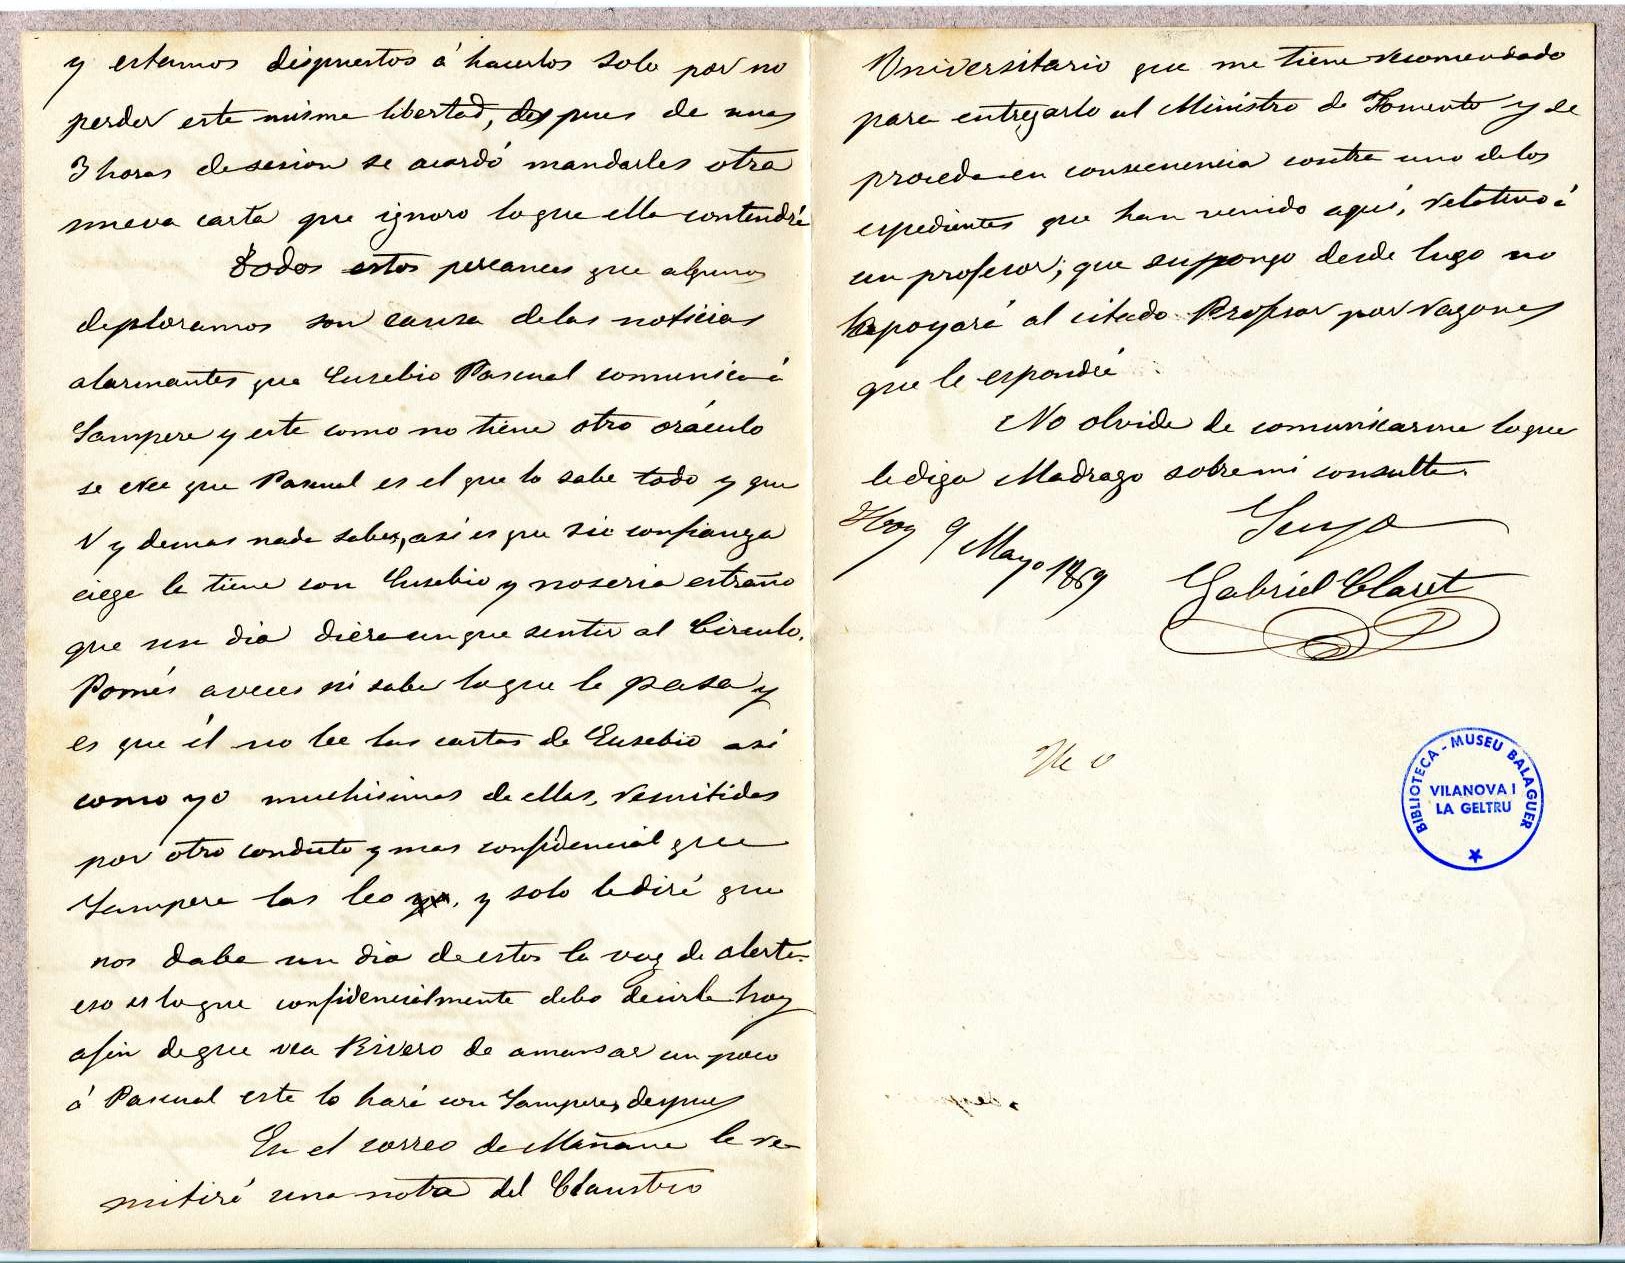 y estamos dispuestos á hacerlos solo por no
perder esta misma libertad, despues de unas
3 horas de sesion se acordó mandarles otra
nueva carta que ignoro loque ella contendrá
Todos estos percances que algunos
deploramos son causa delas noticias
alarmantes que Eusebio Pascual comunica á
Sampere y este como no tiene otro oráculo
se cree que Pascual es el que lo sabe todo y que
V y demas nada saben, asi es que su confianza
ciega la tiene con Eusebio y noseria estraño
que un dia diera unque sentir al Circulo.
Pomés aveces ni sabe loque le pasa y
es que él no lee las cartas de Eusebio asi
como yo muchisimas de ellas, remitidas
por otro conducto y mas confidencial que
Sampere las leo yo, y solo lediré que
nos daba un dia de estos la voz de alerta.
eso es loque confidencialmente debo decirle hoy
afin deque vea Rivero de amansar un poco
á Pascual este lo hará con Sampere, despues
En el correo de Mañana le re-
mitiré una nota del Claustro
Universitario que me tiene recomendado
para entregarlo al Ministro de Fomento y se
proceda en consecuencia contra uno delos
espedientes que han venido aqui, relativo á
un profesor; que supongo desde lugo no
apoyará al citado Profesor por razones
que le espondré
No olvide de comunicarme loque
lediga Madrazo sobre mi consulta.
Suyo
Hoy 9 Mayo 1869
Gabriel Claret
BIBLIOTECA - MUSEU BALAGUER
VILANOVA I
LA GELTRU